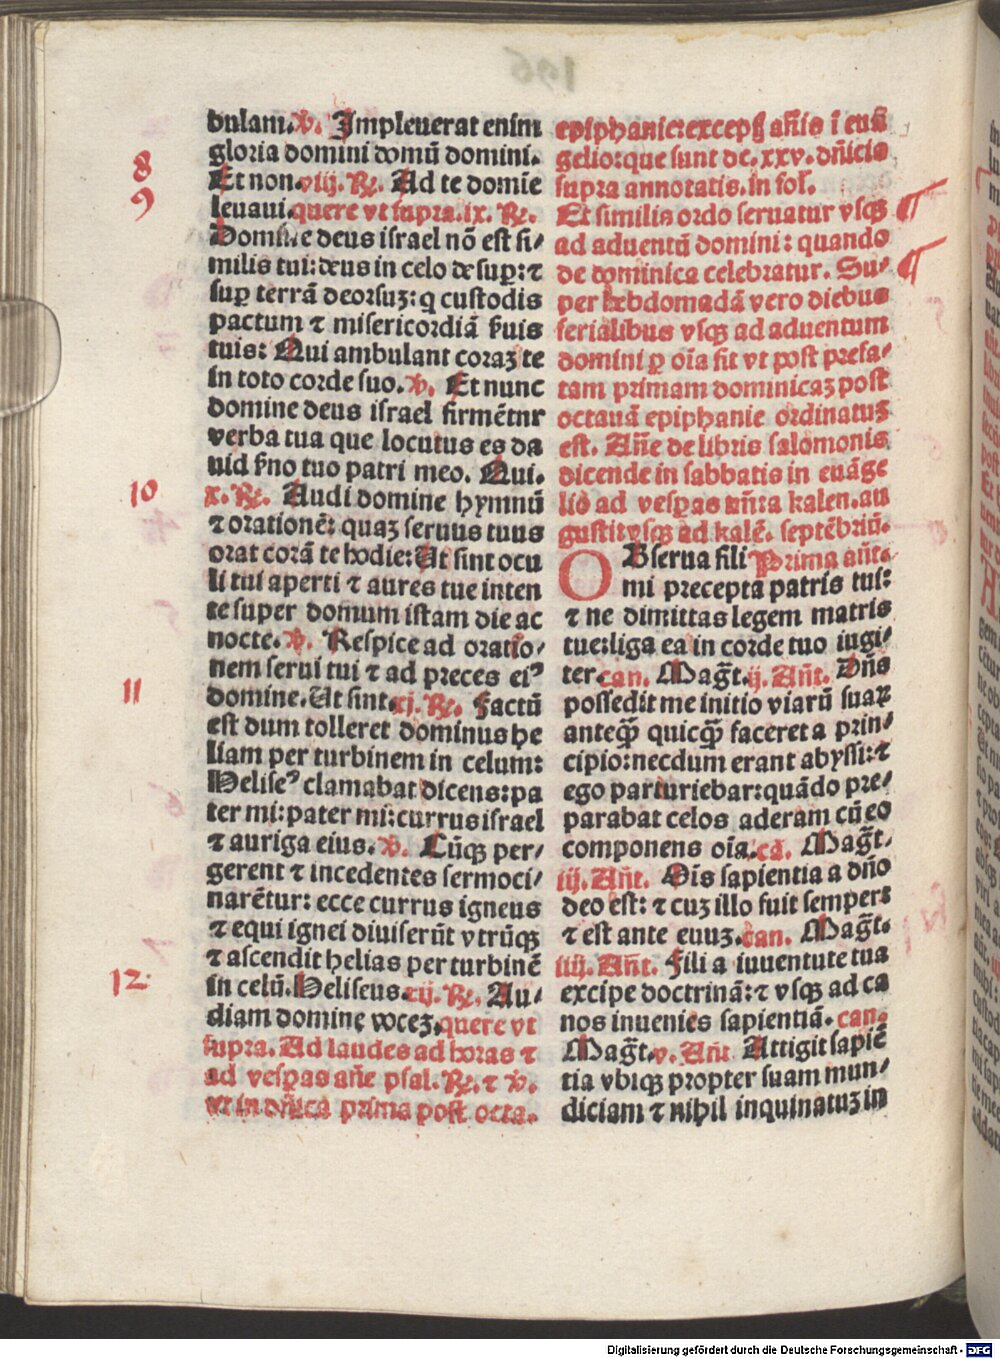 dulam. ꝟ. Impleuerat enim
gloria domini domū domini.
Et non. viij. ℞. Ad te domīe
leuaui. quere vt supra. ix. ℞.
Domine deus israel nō est si⸗
milis tui: deus in celo desuꝑ: ⁊
suꝑ terrā deorsuꝫ: q custodis
pactum ⁊ misericordiā ẜuis
tuis: Qui ambulant coraꝫ te
in toto corde suo. ꝟ. Et nunc
domine deus israel firmētur
verba tua que locutus es da
uid ẜuo tuo patri meo. Qui.
x. ℞. Audi domine hymnū
⁊ orationē: quaꝫ seruus tuus
orat corā te hodie: Ut sint ocu
li tui aperti ⁊ aures tue inten
te super domum istam die ac
nocte. ꝟ. Respice ad oratio⸗
nem serui tui ⁊ ad preces eiꝰ
domine. Ut sint. xj. ℞. Factū
est dum tolleret dominus he
liam per turbinem in celum:
Heliseꝰ clamabat dicens: pa
ter mi: pater mi: currus israel
⁊ auriga eius. ꝟ. Cūqꝫ per⸗
gerent ⁊ incedentes sermoci⸗
narētur: ecce currus igneus
⁊ equi ignei diuiserūt vtrūqꝫ
⁊ ascendit helias per turbinē
in celū. Heliseus. xij. ℞. Au⸗
diam domine voceꝫ. quere vt
supra. Ad laudes ad horas ⁊
ad vesꝑas añe psal. ℞. ⁊ ꝟ.
vt in dñica prima post octa.
8
9
10
11
12
epiphanie: exceptꝭ añis ī euā
gelio: que sunt de. xxv. dñicis
supra annotatis. in fol.
Et similis ordo seruatur vsqꝫ
ad aduentū domini: quando
de dominica celebratur. Su⸗
per hebdomadā vero diebus
ferialibus vsqꝫ ad aduentum
domini ꝑ oīa fit vt post prefa⸗
tam primam dominicaꝫ post
octauā epiphanie ordinatuꝫ
est. Añe de libris salomonis
dicende in sabbatis in euāge
lio ad vesꝑas infra kalen. au
gusti vsqꝫ ad kalē. septēbriū.
OBserua fili Prima añt.
mi precepta patris tui:
⁊ ne dimittas legem matris
tue: liga ea in corde tuo iugi⸗
ter. can. Magt̄. ij. Añt. Dñs
possedit me initio viarū suaꝝ
anteqꝫ̄ quicqꝫ̄ faceret a prin⸗
cipio: necdum erant abyssi: ⁊
ego parturiebar: quādo pre⸗
parabat celos aderam cū eo
componens oīa. cā. Magt̄.
iij. Añt. Oīs sapientia a dño
deo est: ⁊ cuꝫ illo fuit semper:
⁊ est ante euuꝫ. can. Magt̄.
iiij. Añt. Fili a iuuentute tua
excipe doctrinā: ⁊ vsqꝫ ad ca
nos inuenies sapientiā. can.
Magt̄. v. Añt. Attigit sapiē
tia vbiqꝫ propter suam mun⸗
diciam ⁊ nihil inquinatuꝫ in
Digitalisierung gefördert durch die Deutsche Forschungsgemeinschaft - DFG